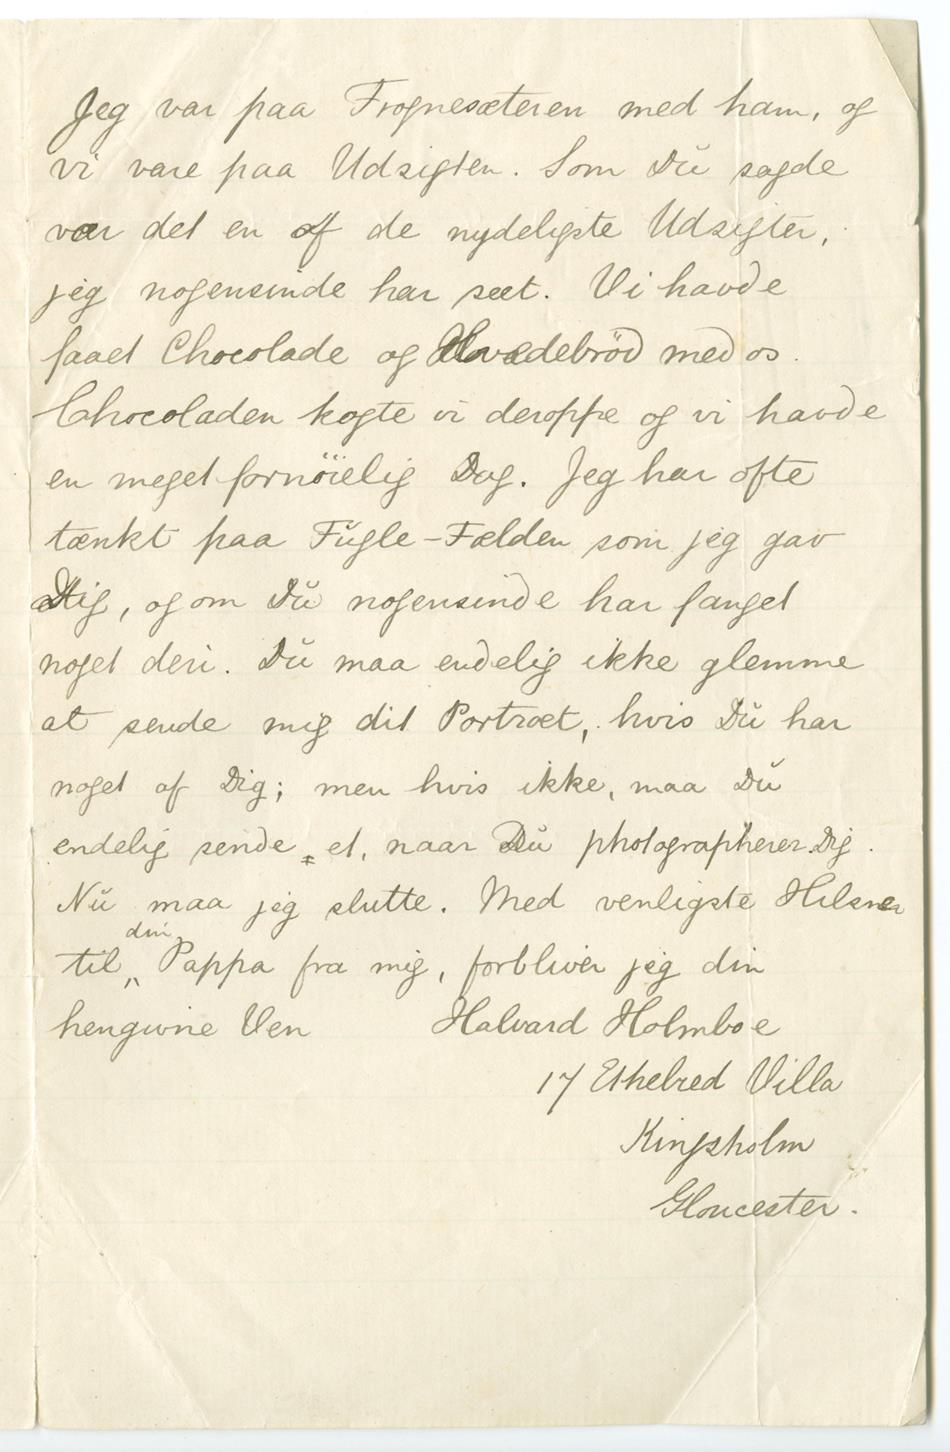 Jeg var paa Frognesæteren med ham, og
vi vare paa Udsigten. Som Du sagde
var det en af de nydeligste Udsigter,
jeg nogensinde har seet. Vi havde
faaet Chocolade og Hvedebröd med os.
Chocoladen kogte vi deroppe og vi havde
en meget fornöielig Dag. Jeg har ofte
tænkt paa Fugle-Fælden som jeg gav
Dig, og om Du nogensinde har fanget
noget deri. Du maa endelig ikke glemme
at sende mig dit Portræt, hvis Du har
noget af Dig; men hvis ikke, maa Du
endelig sende et, naar Du photographerer Dig.
Nu maa jeg slutte. Med venligste Hilsner
til din Pappa fra mig, forbliver jeg din
hengivne Ven Halvard Holmboe
17 Ethelred Villa
Kingsholm
Gloucester.